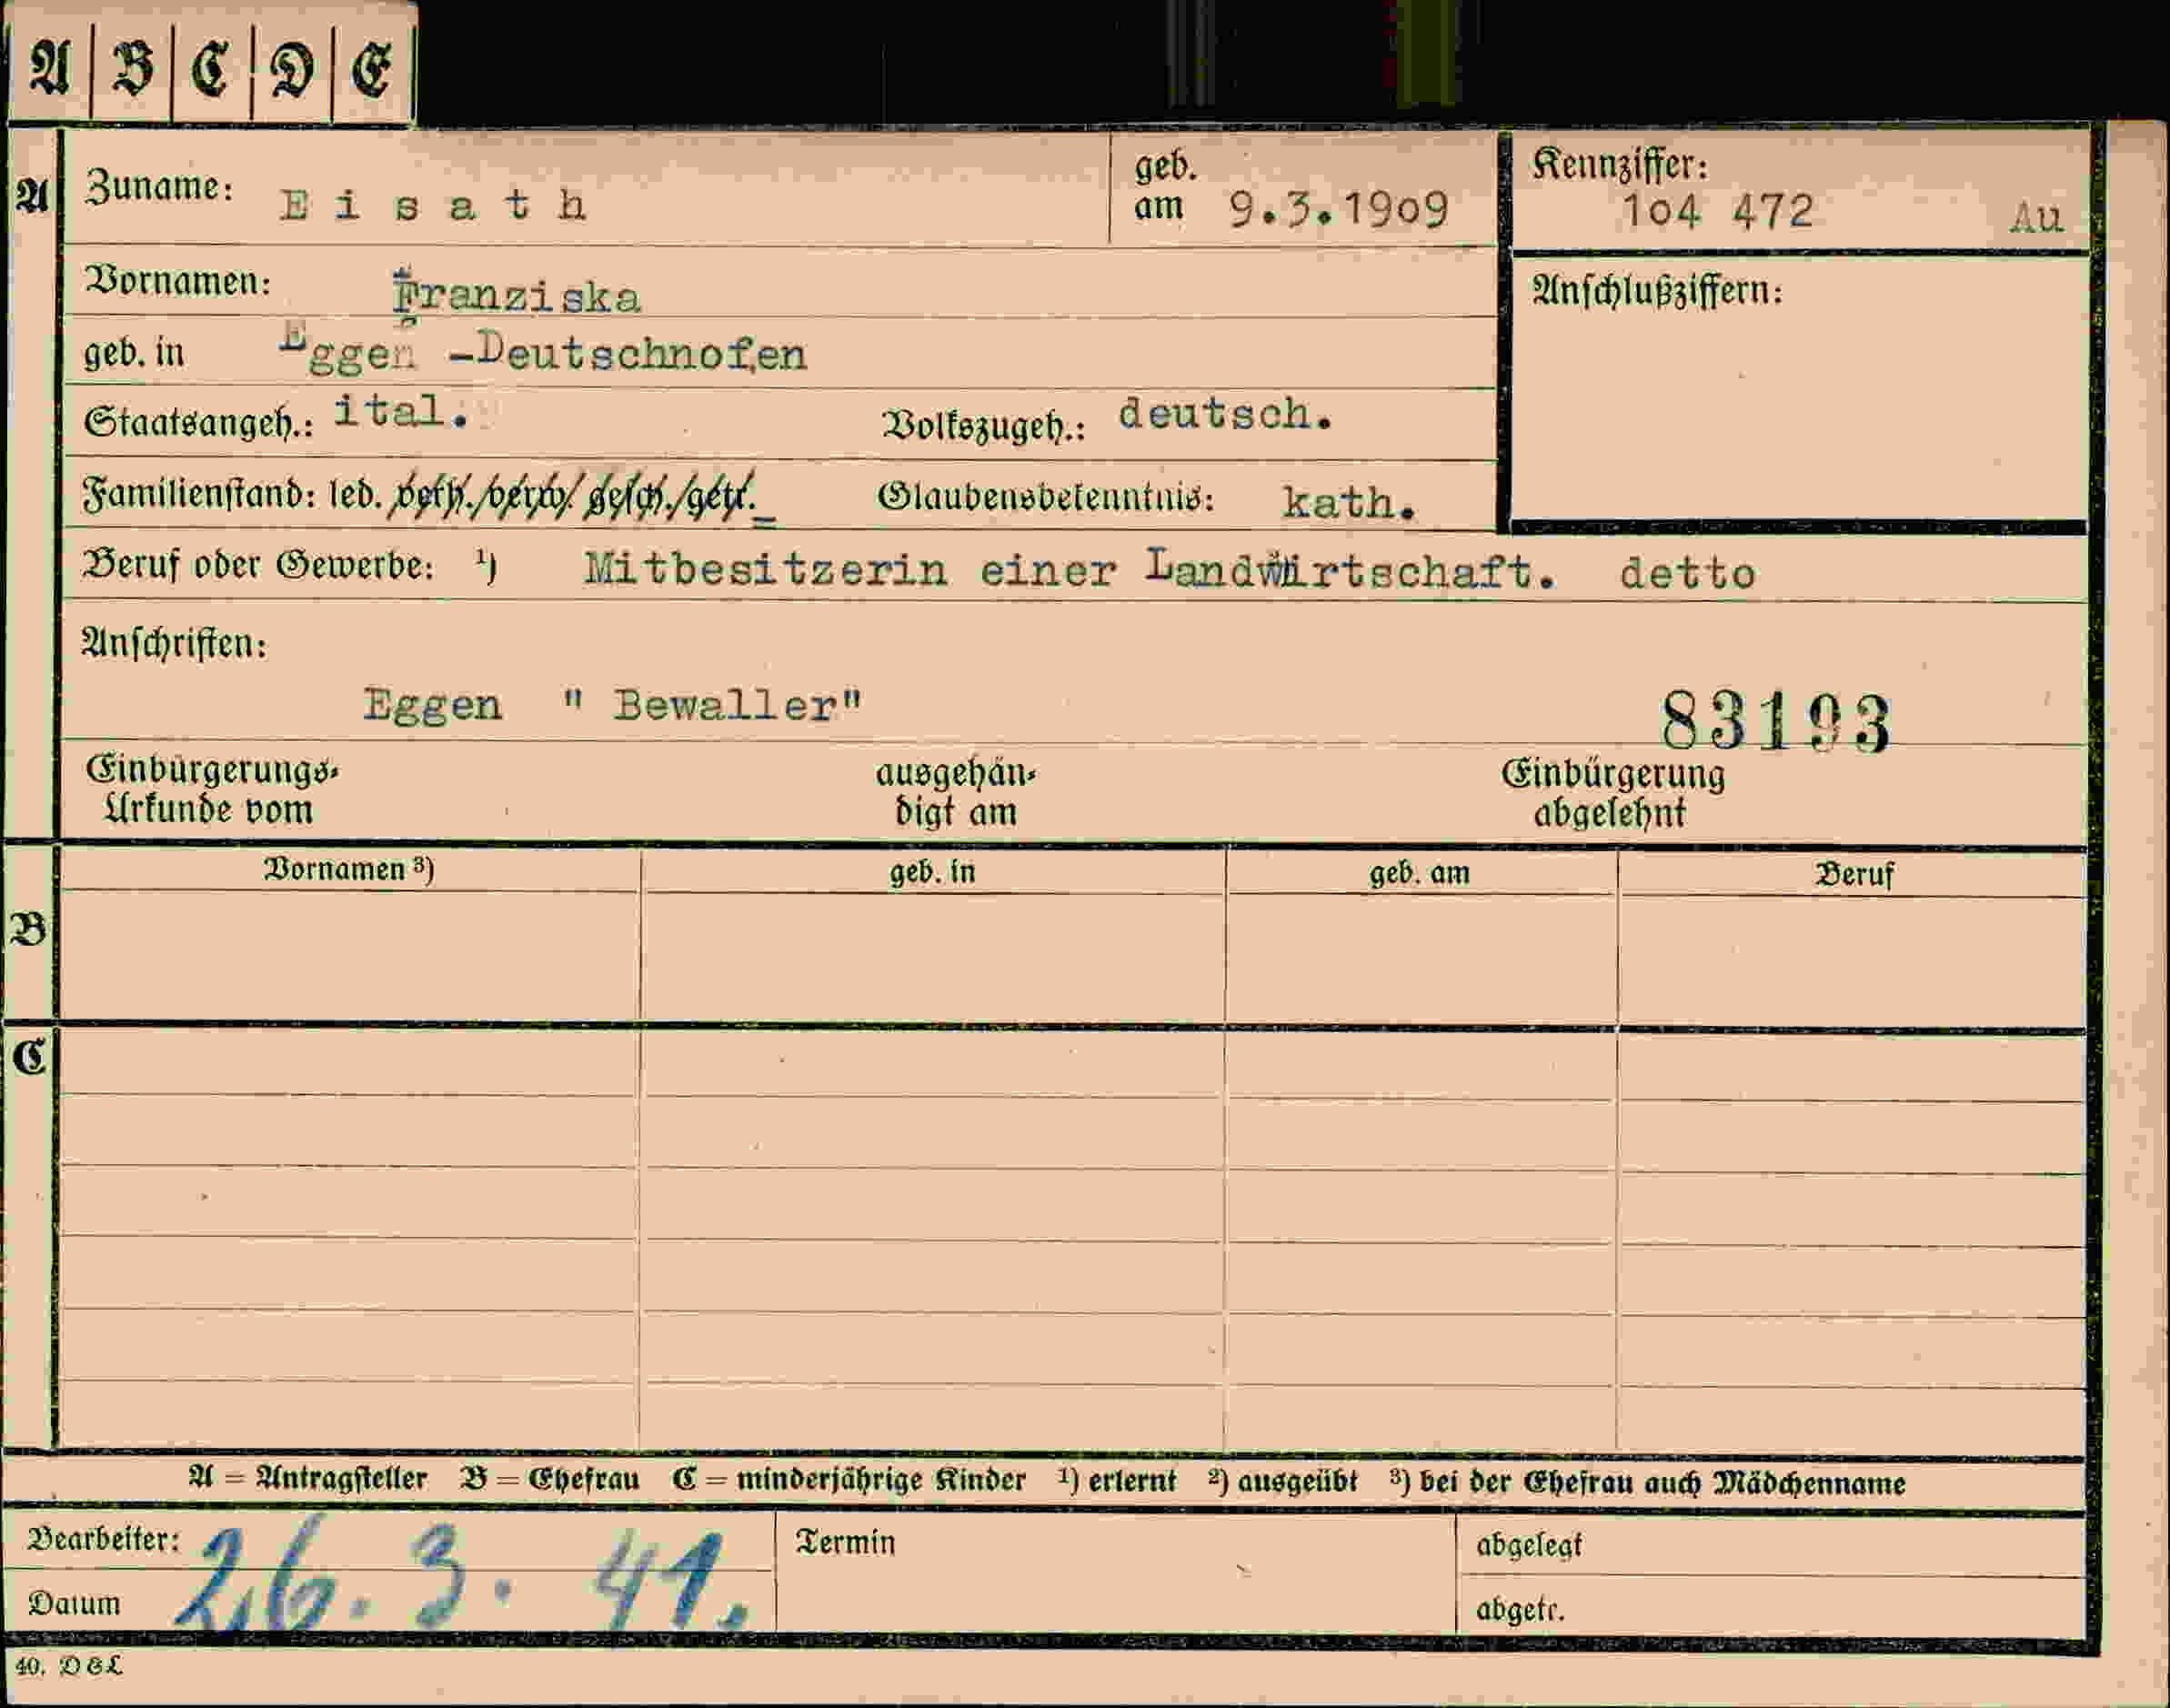 A B C D E
A Zuname: Eisath geb. am 9.3.1909 Kennziffer: 104 472 Au
Vornamen: Franziska Anschlußziffern:
geb. in Eggen -Deutschnofen
Staatsangeh.: ital. Volkszugeh.: deutsch.
Familienstand: led. verh./verw./gesch./getr. Glaubensbekenntnis: kath.
Beruf oder Gewerbe: ¹) Mitbesitzerin einer Landwirtschaft. detto
Anschriften:
Eggen " Bewaller" 83193
Einbürgerungs- ausgehän- Einbürgerung
Urkunde vom digt am abgelehnt
Vornamen ³) geb. in geb. am Beruf
B
C
A = Antragsteller B = Ehefrau C = minderjährige Kinder ¹) erlernt ²) ausgeübt ³) bei der Ehefrau auch Mädchenname
Bearbeiter: 26. 3. 41. Termin abgelegt
Datum abgetr.
40. D & L